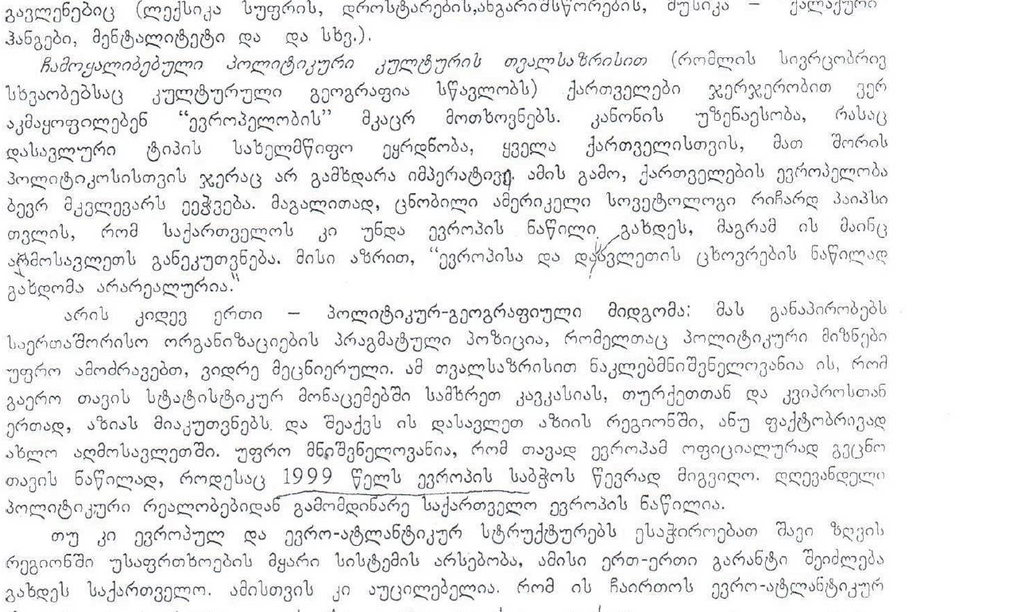 გავლენებიც (ლექსიკა სუფრის, დროსტარების,ანგარიშსწორების, მუსიკა – ქალაქური
ჰანგები, მენტალიტეტი და  და სხვ.).
ჩამოყალიბებული პოლიტიკური კულტურის თვალსაზრისით (რომლის სივრცობრივ
სხვაობებსაც კულტურული გეოგრაფია სწავლობს) ქართველები ჯერჯერობით ვერ
აკმაყოფილებენ “ევროპელობის” მკაცრ მოთხოვნებს. კანონის უზენაესობა, რასაც
დასავლური ტიპის სახელმწიფო ეყრდნობა, ყველა ქართველისთვის, მათ შორის
პოლიტიკოსისთვის ჯერაც არ გამხდარა იმპერატივი. ამის გამო, ქართველების ევროპელობა
ბევრ მკვლევარს ეეჭვება. მაგალითად, ცნობილი ამერიკელი სოვეტოლოგი რიჩარდ პაიპსი
თვლის, რომ საქართველოს კი უნდა ევროპის ნაწილი გახდეს, მაგრამ ის მაინც
აღმოსავლეთს განეკუთვნება. მისი აზრით, “ევროპისა და დასავლეთის ცხოვრების ნაწილად
გახდომა არარეალურია.”
არის კიდევ ერთი – პოლიტიკურ-გეოგრაფიული მიდგომა: მას განაპირობებს
საერთაშორისო ორგანიზაციების პრაგმატული პოზიცია, რომელთაც პოლიტიკური მიზნები
უფრო ამოძრავებთ, ვიდრე მეცნიერული. ამ თვალსაზრისით ნაკლებმნიშვნელოვანია ის, რომ
გაერო თავის სტატისტიკურ მონაცემებში სამხრეთ კავკასიას, თურქეთთან და კვიპროსთან
ერთად, აზიას მიაკუთვნებს და შეაქვს ის დასავლეთ აზიის რეგიონში, ანუ ფაქტობრივად
ახლო აღმოსავლეთში. უფრო მნიშვნელოვანია, რომ თავად ევროპამ ოფიციალურად გვცნო
თავის ნაწილად, როდესაც 1999 წელს ევროპის საბჭოს წევრად მიგვიღო. დღევანდელი
პოლიტიკური რეალობებიდან გამომდინარე საქართველო ევროპის ნაწილია.
თუ კი ევროპულ და ევრო-ატლანტიკურ სტრუქტურებს ესაჭიროებათ შავი ზღვის
რეგიონში უსაფრთხოების მყარი სისტემის არსებობა, ამისი ერთ-ერთი გარანტი შეიძლება
გახდეს საქართველო. ამისთვის კი აუცილებელია. რომ ის ჩაირთოს ევრო-ატლანტიკურ